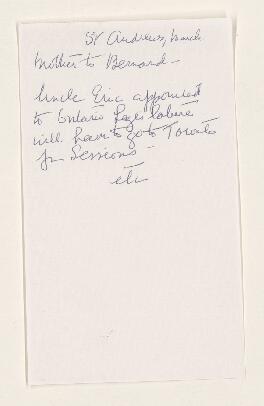 St Andrews,
Mother to Bernard -
Uncle Eric appointed
to Ontario Legislature
will have to go to Toronto
for Sessions -
etc